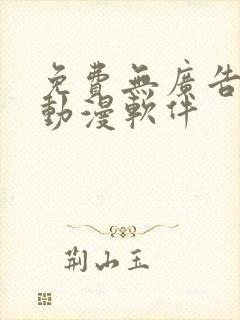 免費無廣告
動漫軟件
荆山玉